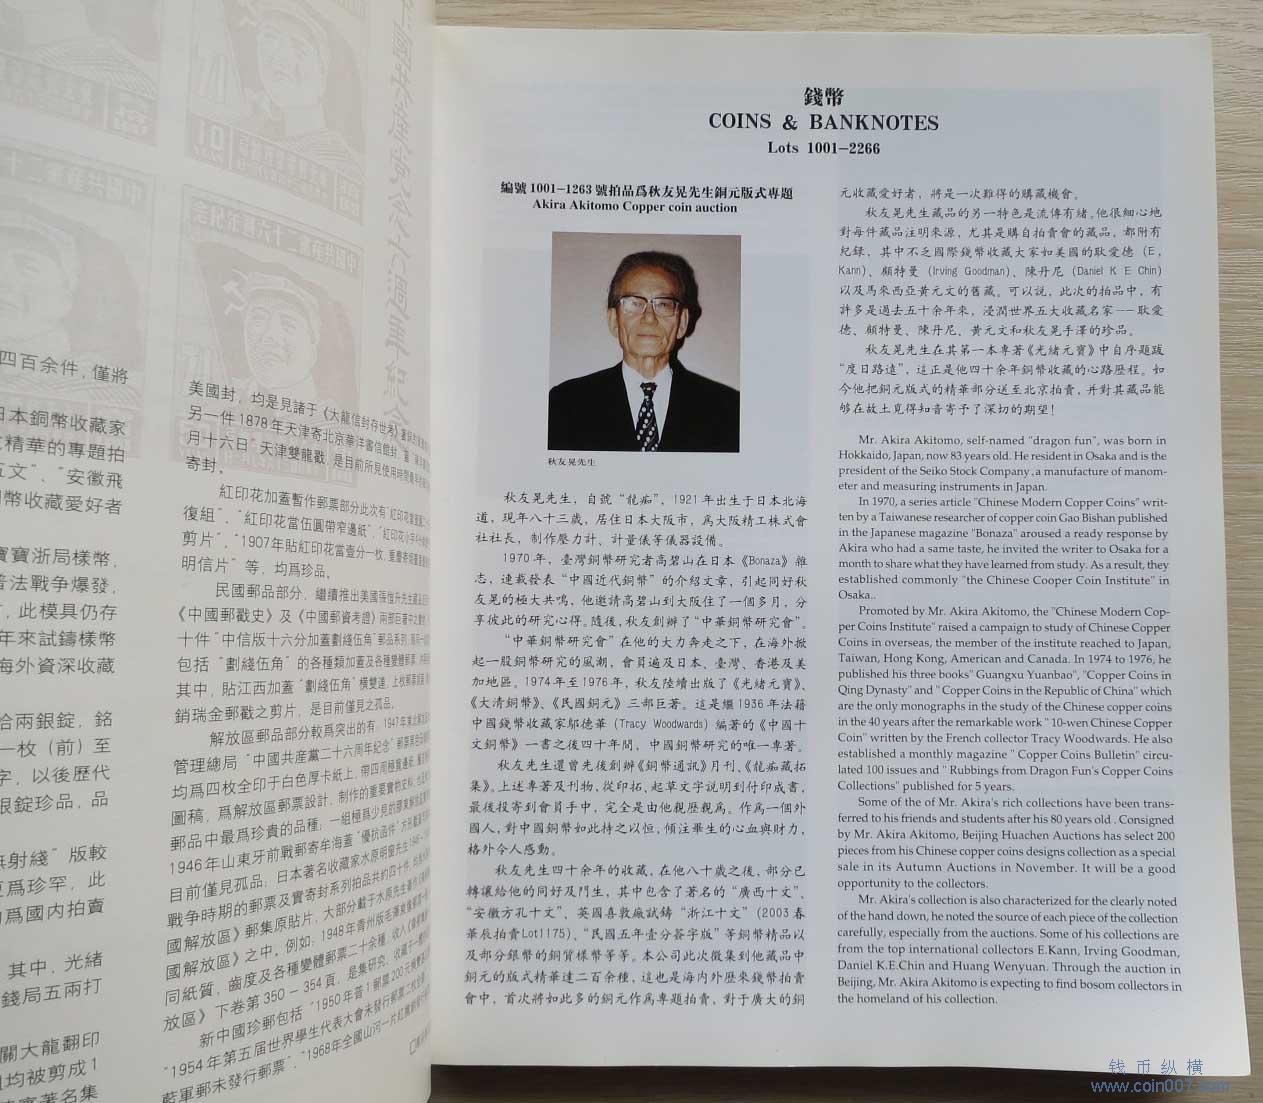 四百余件，僅將
日本銅幣收藏家
精華的專題拍
五文”、“安徽飛
幣收藏愛好者
寶浙局樣幣，
普法戰争爆發，
，此模具仍存
年來試鑄樣幣
海外資深收藏
兩銀錠，銘
一枚（前）至
字，以後歷代
銀錠珍品，品
無射綫”版較
爲珍罕，此
爲國内拍賣
其中，光緒
錢局五兩打
關大龍翻印
均被剪成1
美國封，均是見諸于《大龍信封存世考》
另一件1878年天津寄北京
月十六日”天津雙龍戳，是目前所見使用時間
寄封。
紅印花加蓋暫作郵票部分此次有
復組”、“紅印花當伍圓帶窄邊紙”、“紅印花小字
剪片”、“1907年貼紅印花當壹分一枚，
明信片”等，均爲珍品。
民國郵品部分，繼續推出美國
《中國郵戳史》及《中國郵資考證》兩部巨著中
十件“中信版十六分加蓋劃綫伍角”郵品系列
包括“劃綫伍角”的各種類加蓋及各種變體
其中，貼江西加蓋“劃綫伍角”橫雙連，
銷瑞金郵戳之剪片，是目前僅見之孤品。
解放區郵品部分較爲突出的有，1947年東北
管理總局“中國共産黨二十六周年紀念”郵票
均爲四枚全印于白色厚卡紙上，帶四周
圖稿，爲解放區郵票設計，制作的重要實物史料，
郵品中最爲珍貴的品種，一組極爲少見的
1946年山東牙前戰郵寄牟海蓋“優抗函件”
目前僅見孤品；日本著名收藏家水原明窗先生
戰争時期的郵票及實寄封系列拍品共約四十件，
國解放區》郵集原貼片，大部分載于水原先生
國解放區》之中。例如：1948年青州版毛
同紙質，齒度及各種變體郵票二十余種，收入
放區》下卷第350－354頁，是集研究、收藏于一體
新中國珍郵包括“1950年普1郵票200元
“1954年第五届世界學生代表大會未發行郵票
藍軍郵未發行郵票”、“1968年全國山河一片紅
錢幣
COINS & BANKNOTES
Lots 1001–2266
編號1001–1263號拍品爲秋友晃先生銅元版式專題
Akira Akitomo Copper coin auction
秋友晃先生
秋友晃先生，自號“龍痴”，1921年出生于日本北海
道，現年八十三歲，居住日本大阪市，爲大阪精工株式會
社社長，制作壓力計、計量儀等儀器設備。
1970年，臺灣銅幣研究者高碧山在日本《Bonaza》雜
志，連載發表“中國近代銅幣”的介紹文章，引起同好秋
友晃的極大共鳴，他邀請高碧山到大阪住了一個多月，分
享彼此的研究心得。隨後，秋友創辦了“中華銅幣研究會”。
“中華銅幣研究會”在他的大力奔走之下，在海外掀
起一股銅幣研究的風潮，會員遍及日本、臺灣、香港及美
加地區。1974年至1976年，秋友陸續出版了《光緒元寶》、
《大清銅幣》、《民國銅元》三部巨著。這是繼1936年法籍
中國錢幣收藏家鄔德華（Tracy Woodwards）編著的《中國十
文銅幣》一書之後四十年間，中國銅幣研究的唯一專著。
秋友先生還曾先後創辦《銅幣通訊》月刊、《龍痴藏拓
集》。上述專著及刊物，從印拓、起草文字說明到付印成書，
最後投寄到會員手中，完全是由他親歷親爲。作爲一個外
國人，對中國銅幣如此持之以恒，傾注畢生的心血與財力，
格外令人感動。
秋友先生四十余年的收藏，在他八十歲之後，部分已
轉讓給他的同好及門生，其中包含了著名的“廣西十文”、
“安徽方孔十文”、英國喜敦廠試鑄“浙江十文”（2003春
華辰拍賣Lot1175）、“民國五年壹分簽字版”等銅幣精品以
及部分銀幣的銅質樣幣等等。本公司此次徵集到他藏品中
銅元的版式精華達二百余種，這也是海内外歷來錢幣拍賣
會中，首次將如此多的銅元作爲專題拍賣，對于廣大的銅
元收藏愛好者，將是一次難得的購藏機會。
秋友晃先生藏品的另一特色是流傳有緒。他很細心地
對每件藏品注明來源，尤其是購自拍賣會的藏品，都附有
紀録，其中不乏國際錢幣收藏大家如美國的耿愛德（E，
Kann）、顧特曼（Irving Goodman）、陳丹尼（Daniel K E Chin）
以及馬來西亞黄元文的舊藏。可以説，此次的拍品中，有
許多是過去五十余年來，浸潤世界五大收藏名家——耿愛
德、顧特曼、陳丹尼、黄元文和秋友晃手澤的珍品。
秋友晃先生在其第一本專著《光緒元寶》中自序題跋
“度日路遠”，這正是他四十余年銅幣收藏的心路歷程。如
今他把銅元版式的精華部分送至北京拍賣，并對其藏品能
够在故土覓得知音寄予了深切的期望！
Mr. Akira Akitomo, self-named "dragon fun", was born in
Hokkaido, Japan, now 83 years old. He resident in Osaka and is the
president of the Seiko Stock Company , a manufacture of manom-
eter and measuring instruments in Japan.
In 1970, a series article "Chinese Modern Copper Coins" writ-
ten by a Taiwanese researcher of copper coin Gao Bishan published
in the Japanese magazine "Bonaza" aroused a ready response by
Akira who had a same taste, he invited the writer to Osaka for a
month to share what they have learned from study. As a result, they
established commonly "the Chinese Cooper Coin Institute" in
Osaka..
Promoted by Mr. Akira Akitomo, the "Chinese Modern Cop-
per Coins Institute" raised a campaign to study of Chinese Copper
Coins in overseas, the member of the institute reached to Japan,
Taiwan, Hong Kong, American and Canada. In 1974 to 1976, he
published his three books" Guangxu Yuanbao", "Copper Coins in
Qing Dynasty" and " Copper Coins in the Republic of China" which
are the only monographs in the study of the Chinese copper coins
in the 40 years after the remarkable work " 10-wen Chinese Copper
Coin" written by the French collector Tracy Woodwards. He also
established a monthly magazine " Copper Coins Bulletin" circu-
lated 100 issues and " Rubbings from Dragon Fun's Copper Coins
Collections" published for 5 years.
Some of the of Mr. Akira's rich collections have been trans-
ferred to his friends and students after his 80 years old . Consigned
by Mr. Akira Akitomo, Beijing Huachen Auctions has select 200
pieces from his Chinese copper coins designs collection as a special
sale in its Autumn Auctions in November. It will be a good
opportunity to the collectors.
Mr. Akira's collection is also characterized for the clearly noted
of the hand down, he noted the source of each piece of the collection
carefully, especially from the auctions. Some of his collections are
from the top international collectors E.Kann, Irving Goodman,
Daniel K.E.Chin and Huang Wenyuan. Through the auction in
Beijing, Mr. Akira Akitomo is expecting to find bosom collectors in
the homeland of his collection.
钱币纵横
www.coin007.com